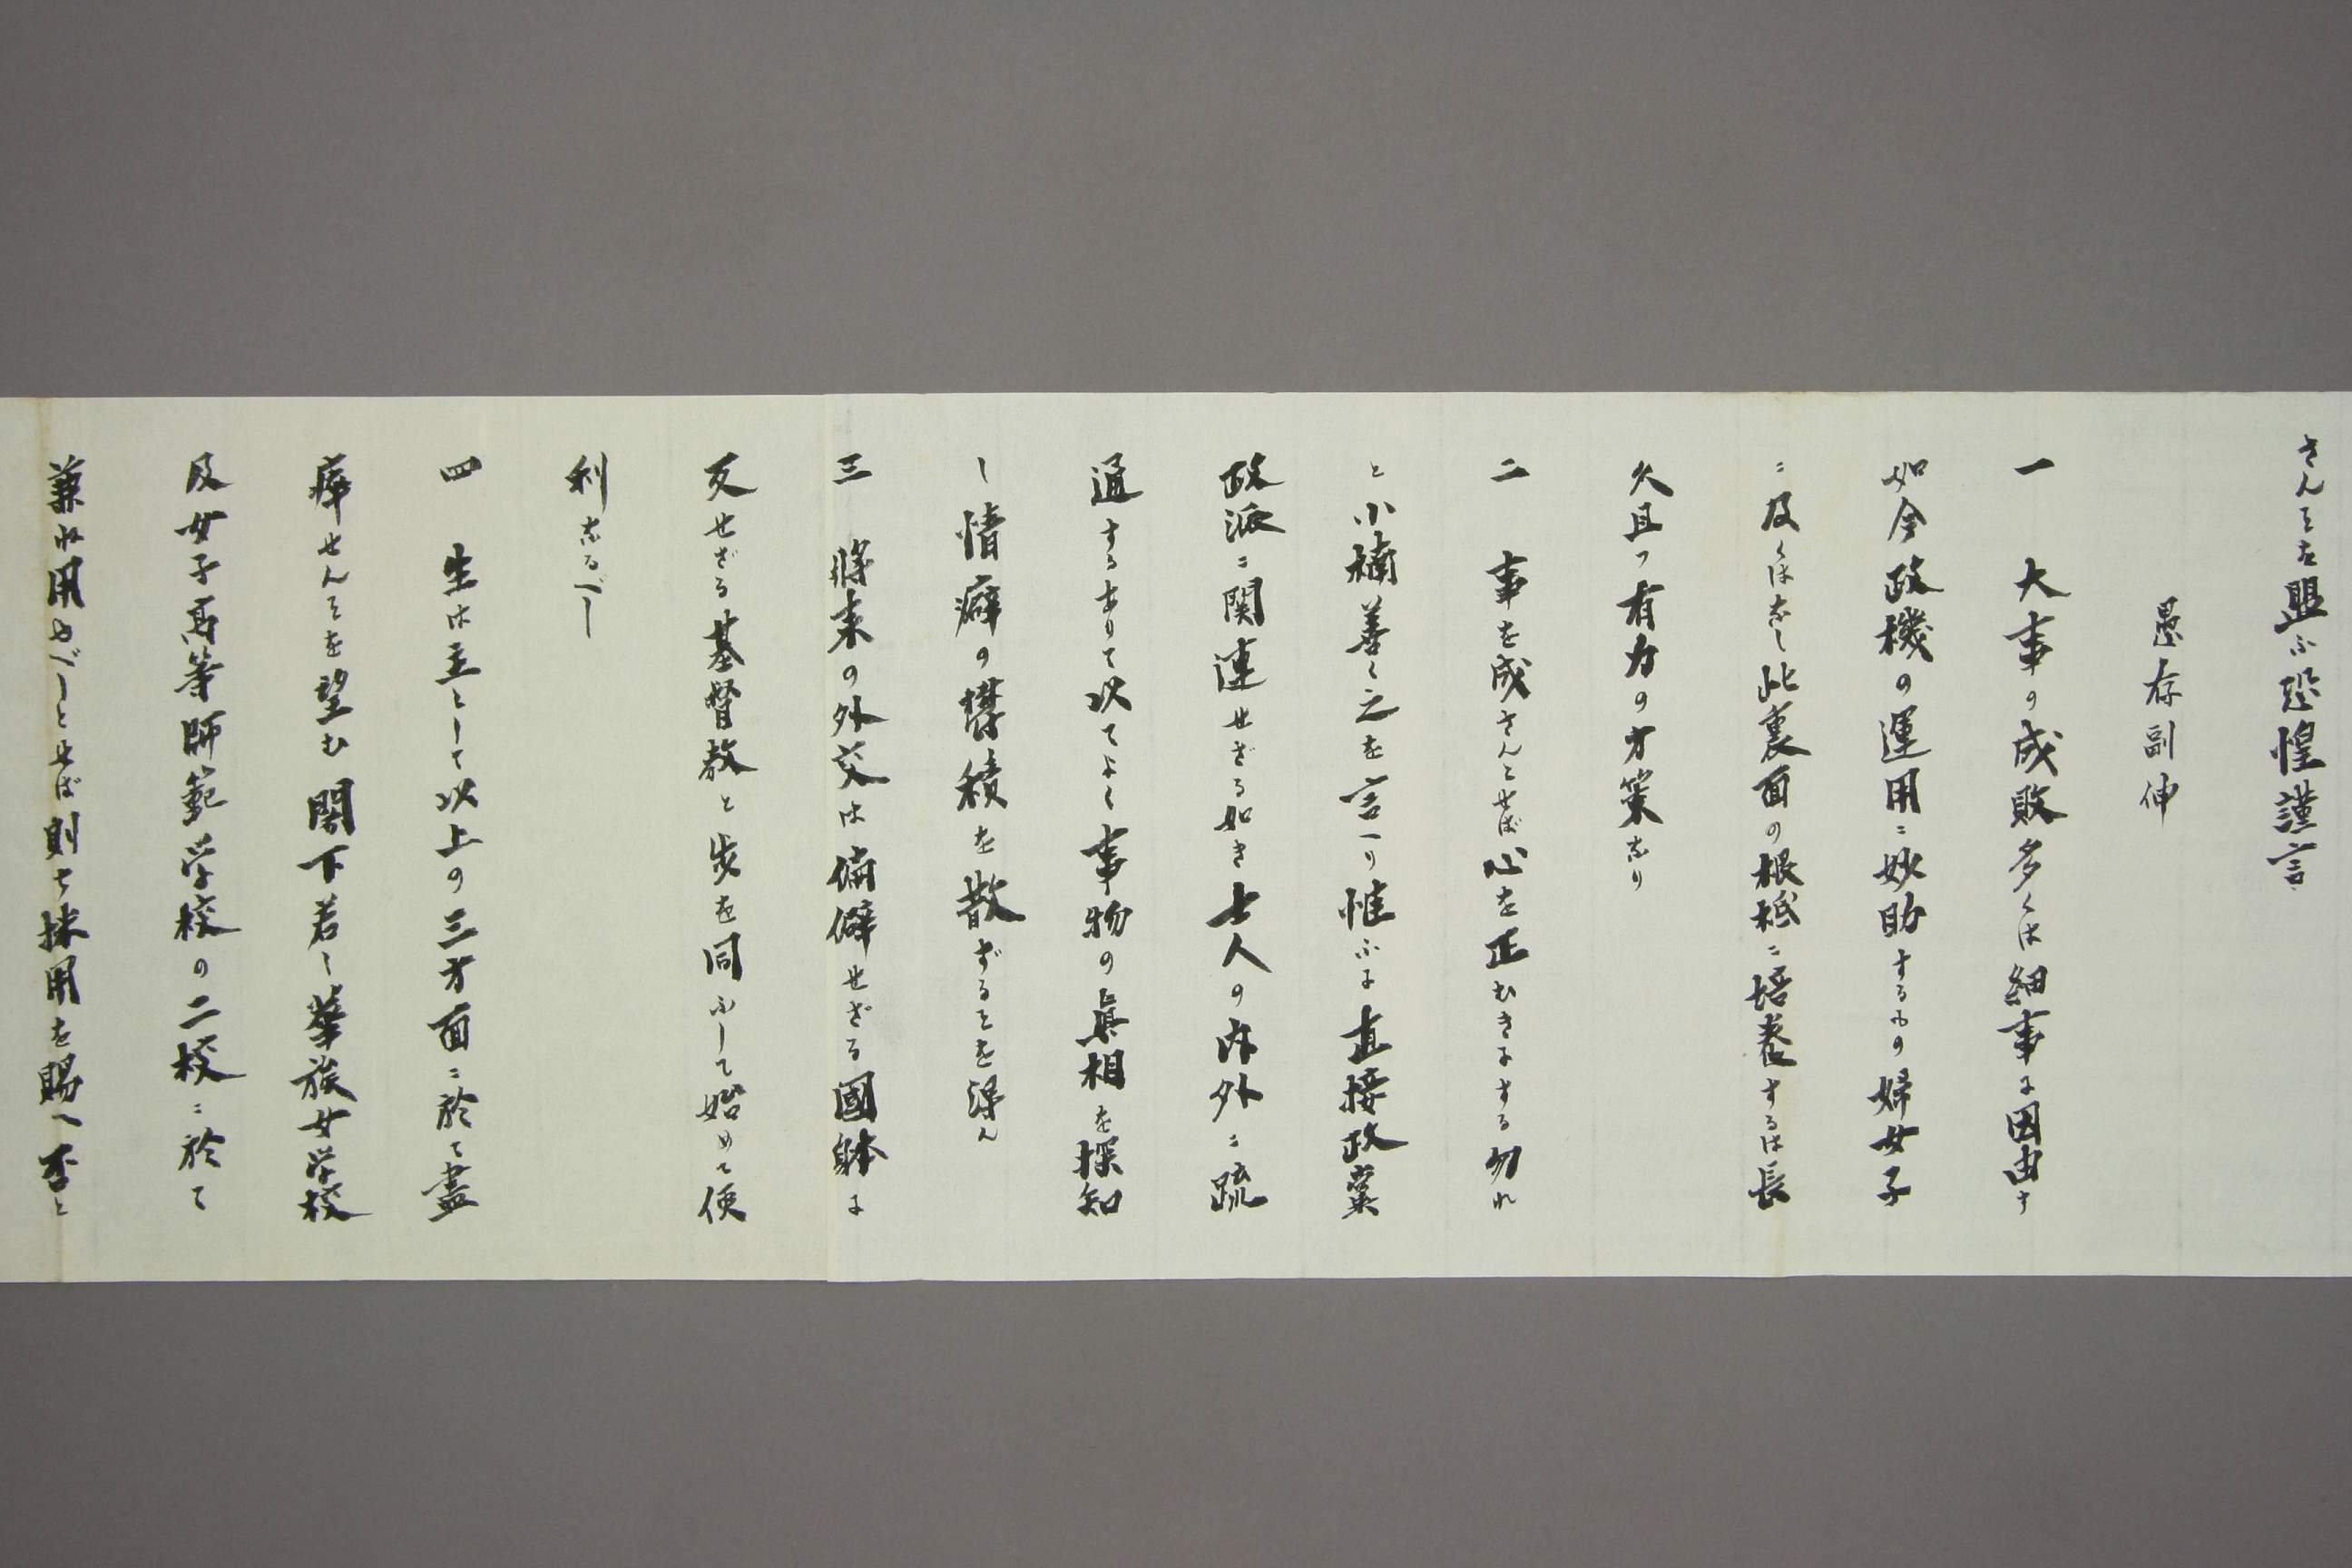 さんヿを盟ふ恐惶謹言
愚存副伸
一 大事の成敗多くは細事に因由す
如今政機の運用ニ妙助するもの婦女子
ニ及くはなし此裏面の根柢ニ培養するは長
久且つ有力の方策なり
二 事を成さんとせば心を正むきにする勿れ
と小楠善く之を言へり惟ふに直接政黨
政派ニ関連せざる如き士人の内外ニ疏
通するありて以てよく事物の眞相を探知
し情癖の欝積を散ずるヿを得ん
三 将来の外交は偏僻せざる國躰に
反せざる基督教と歩を同ふして始めて便
利なるべし
四 生は主として以上の三方面ニ於て盡
瘁せんヿを望む閣下若し華族女学校
及女子高等師範学校の二校ニ於て
兼ね用ゆべしとせば則ち採用を賜へ否と